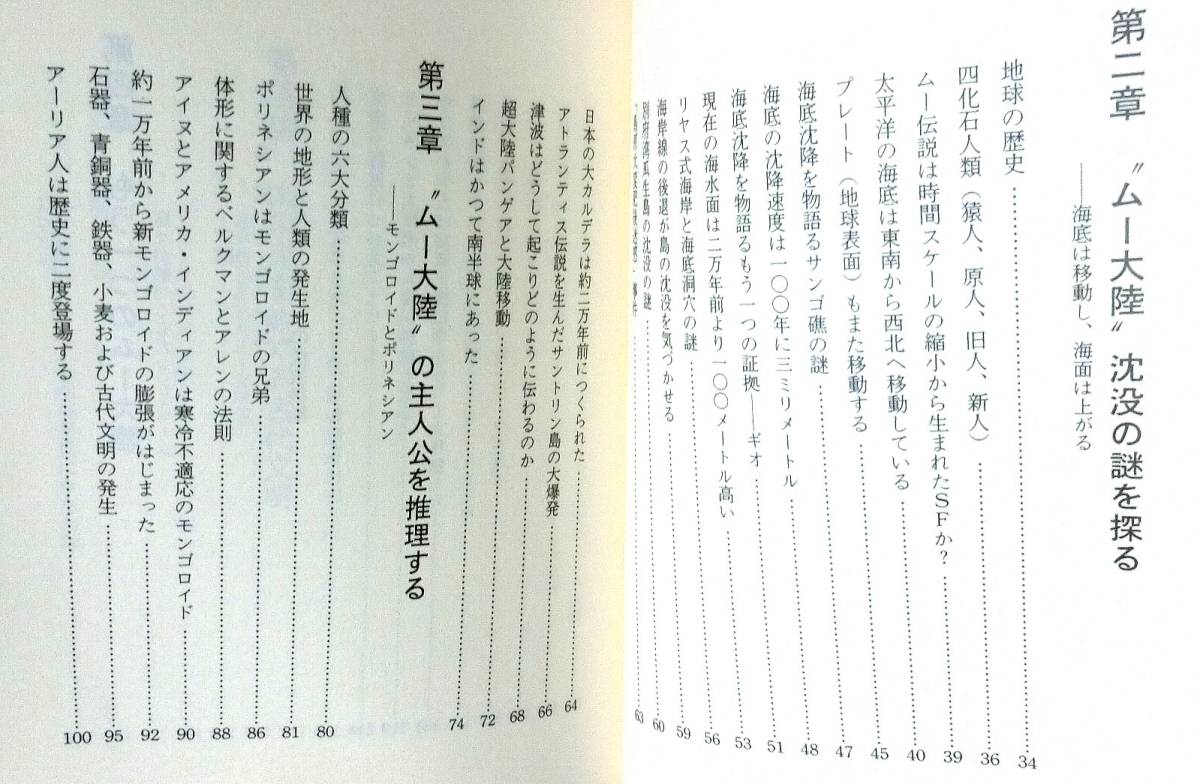 第二章 〝ムー大陸〟沈没の謎を探る
――海底は移動し、海面は上がる
地球の歴史……34
四化石人類（猿人、原人、旧人、新人）……36
ムー伝説は時間スケールの縮小から生まれたSFか?……39
太平洋の海底は東南から西北へ移動している……40
プレート（地球表面）もまた移動する……45
海底沈降を物語るサンゴ礁の謎……47
海底の沈降速度は一〇〇年に三ミリメートル……48
海底沈降を物語るもう一つの証拠――ギオ……51
現在の海水面は二万年前より一〇〇メートル高い……53
リヤス式海岸と海底洞穴の謎……56
海岸線の後退が島の沈没を気づかせる……59
別府湾瓜生島の沈没の謎……60
63
日本の大カルデラは約二万年前につくられた……64
アトランティス伝説を生んだサントリン島の大爆発……66
津波はどうして起こりどのように伝わるのか……68
超大陸パンゲアと大陸移動……72
インドはかつて南半球にあった……74
第三章 〝ムー大陸〟の主人公を推理する
――モンゴロイドとポリネシアン
人種の六大分類……80
世界の地形と人類の発生地……81
ポリネシアンはモンゴロイドの兄弟……86
体形に関するベルクマンとアレンの法則……88
アイヌとアメリカ・インディアンは寒冷不適応のモンゴロイド……90
約一万年前から新モンゴロイドの膨張がはじまった……92
石器、青銅器、鉄器、小麦および古代文明の発生……95
アーリア人は歴史に二度登場する……100